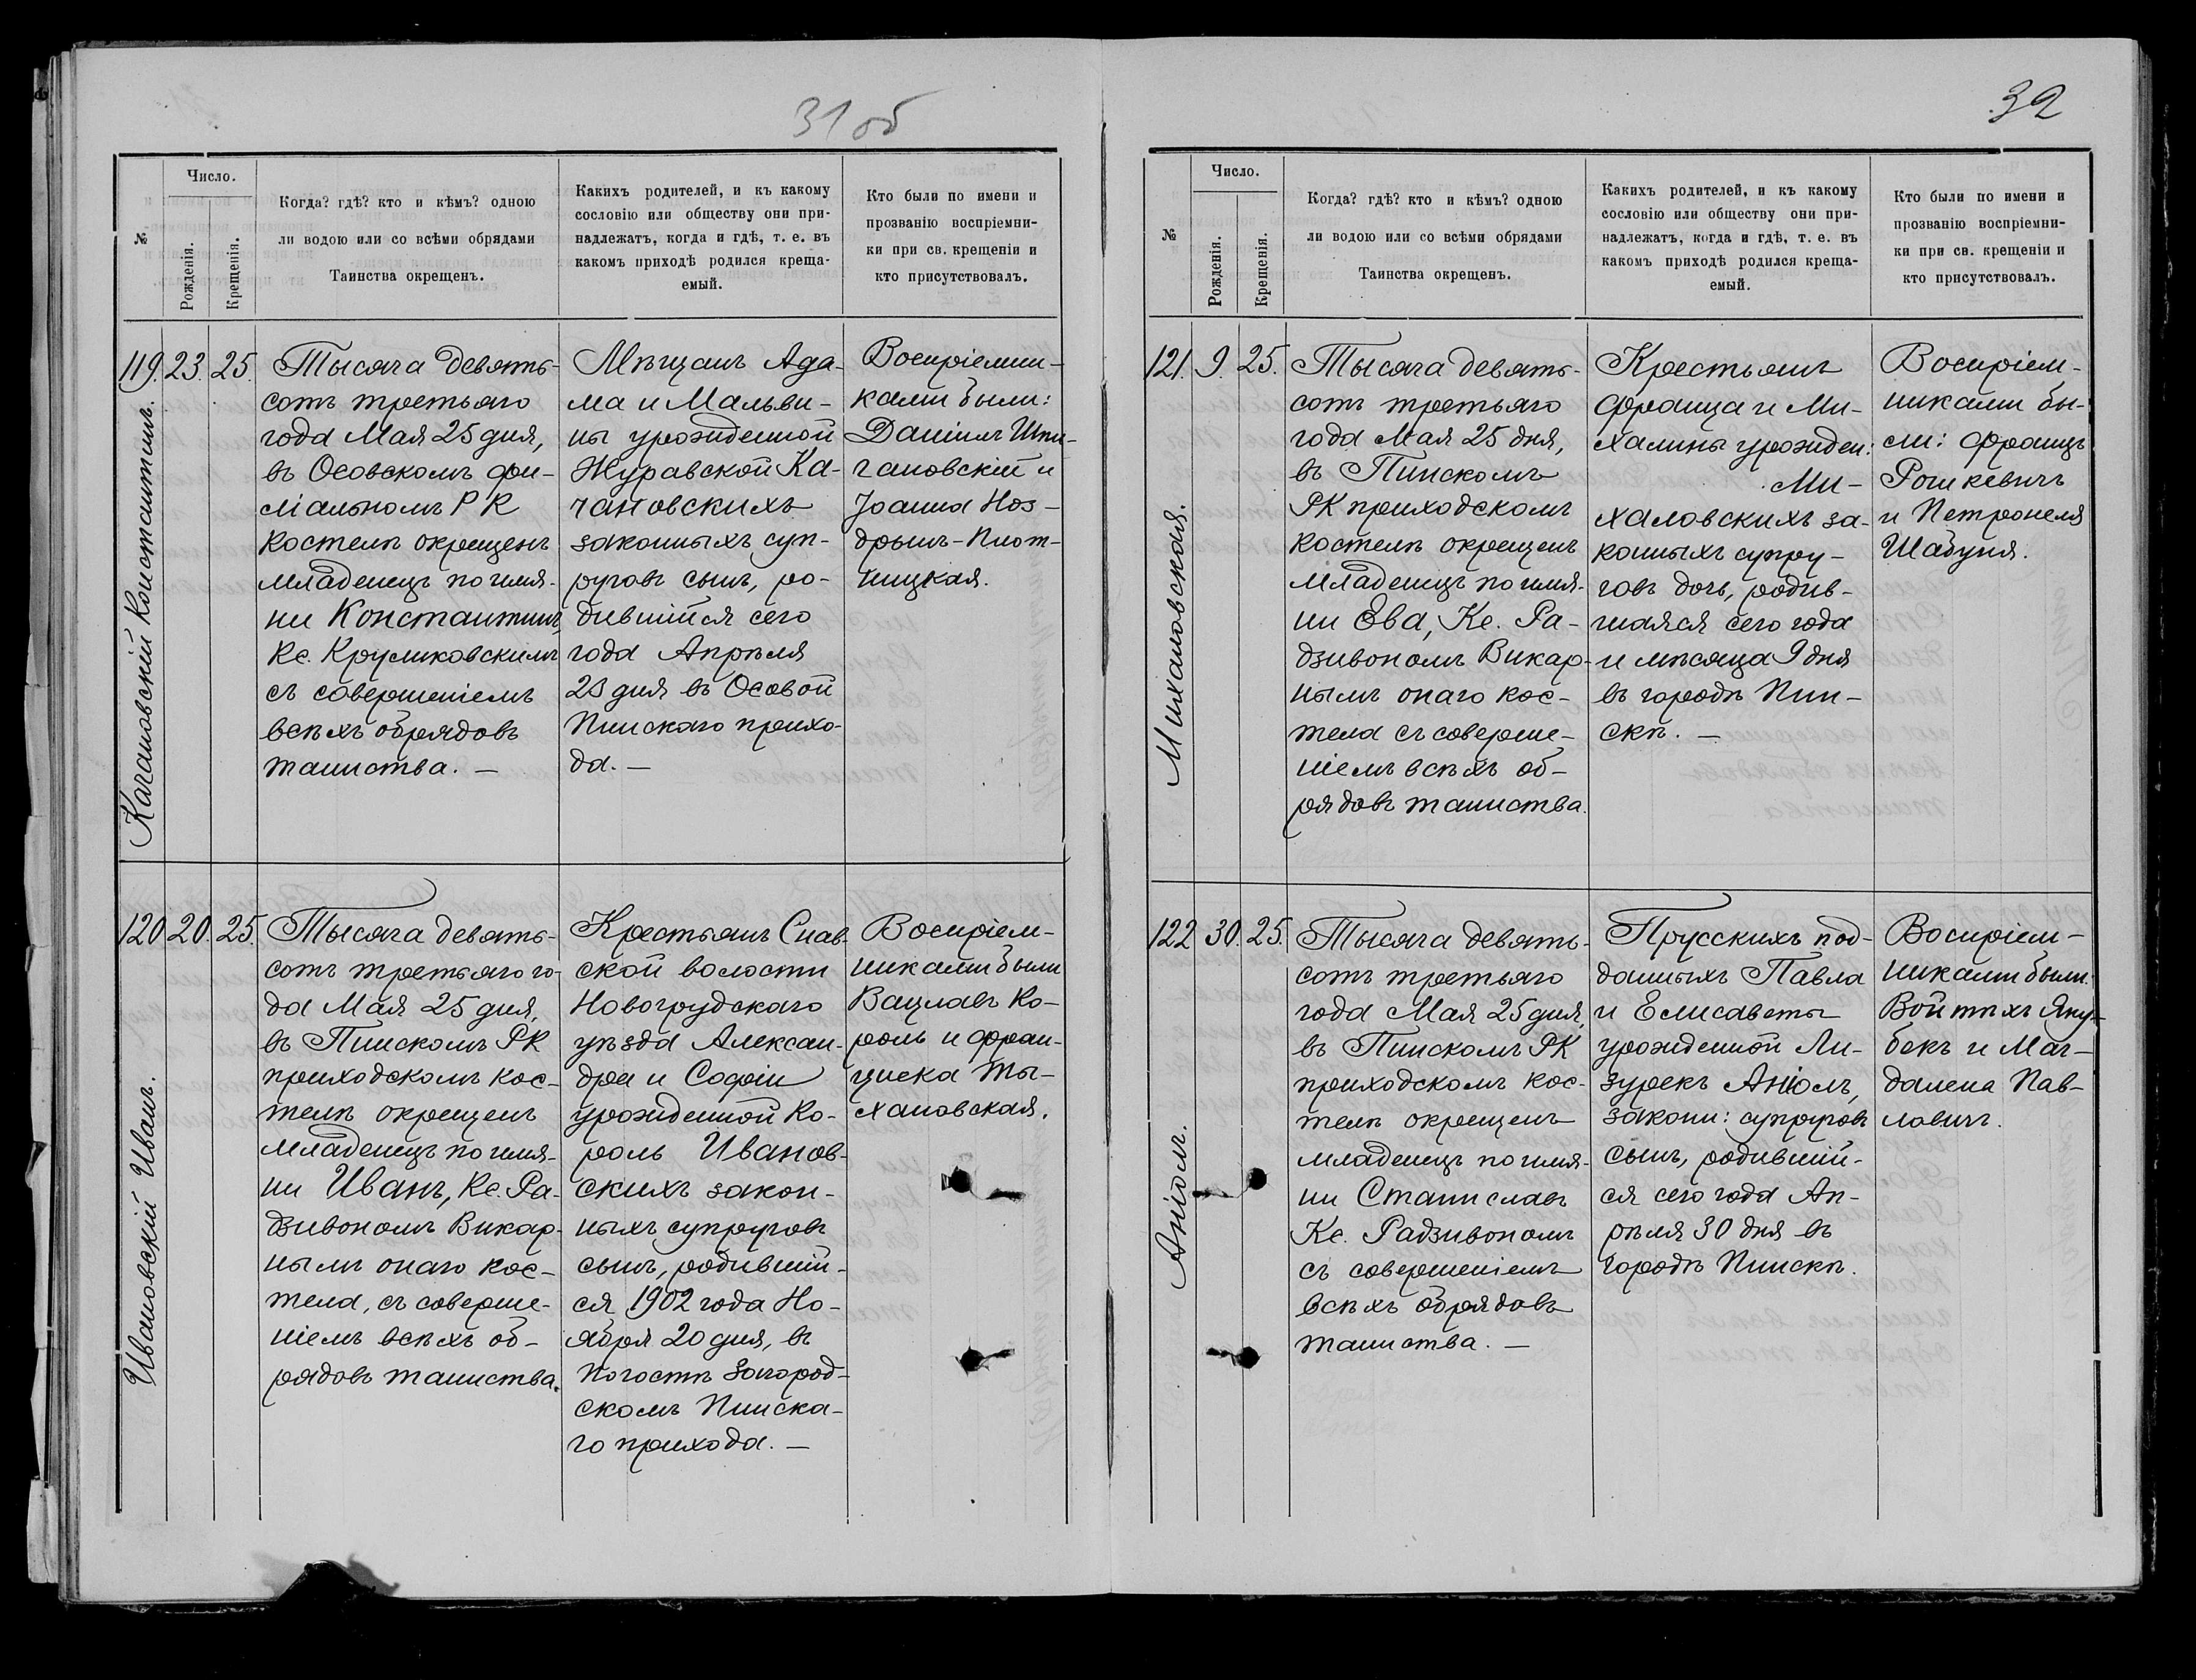 31 об
№
Число.
Рожденія.
Крещенія.
Когда? гдѣ? кто и кѣмъ? одною
ли водою или со всѣми обрядами
Таинства окрещенъ.
Какихъ родителей, и къ какому
сословію или обществу они при-
надлежатъ, когда и гдѣ, т. е. въ
какомъ приходѣ родился креща-
емый.
Кто были по имени и
прозванію воспріемни-
ки при св. крещеніи и
кто присутствовалъ.
119. 23. 25.
Качановскій Константинъ.
Тысяча девять-
сотъ третьяго
года Мая 25 дня,
въ Осовскомъ фи-
ліальномъ РК
костелѣ окрещенъ
младенецъ по имя-
ни Константинъ,
Кс. Круликовскимъ
съ совершеніемъ
всѣхъ обрядовъ
таинства. —
Мѣщанъ Ада-
ма и Мальви-
ны урожденной
Журавской Ка-
чановскихъ
законныхъ суп-
руговъ сынъ, ро-
дившійся сего
года Апрѣля
23 дня въ Осовой
Пинскаго прихо-
да. —
Воспріемни-
ками были:
Даніилъ Шпи-
гановскій и
Іоанна Ноз-
дрынъ-Плот-
ницкая.
120 20. 25.
Ивановскій Иванъ.
Тысяча девять-
сотъ третьяго го-
да Мая 25 дня,
въ Пинскомъ РК
приходскомъ кос-
телѣ окрещенъ
младенецъ по имя-
ни Иванъ, Кс. Ра-
дзивономъ Викар-
нымъ онаго кос-
тела, съ соверше-
ніемъ всѣхъ об-
рядовъ таинства.
Крестьянъ Снав-
ской волости
Новогрудскаго
уѣзда Алексан-
дра и Софіи
урожденной Ко-
роль Иванов-
скихъ закон-
ныхъ супруговъ
сынъ, родившій-
ся 1902 года Но-
ября 20 дня, въ
Погостѣ Загород-
скомъ Пинска-
го прихода. —
Воспріем-
никами были
Вацлавъ Ко-
роль и Фран-
циска Ты-
хановская.
32
№
Число.
Рожденія.
Крещенія.
Когда? гдѣ? кто и кѣмъ? одною
ли водою или со всѣми обрядами
Таинства окрещенъ.
Какихъ родителей, и къ какому
сословію или обществу они при-
надлежатъ, когда и гдѣ, т. е. въ
какомъ приходѣ родился креща-
емый.
Кто были по имени и
прозванію воспріемни-
ки при св. крещеніи и
кто присутствовалъ.
121. 9. 25.
Михаловская.
Тысяча девять-
сотъ третьяго
года Мая 25 дня,
въ Пинскомъ
РК приходскомъ
костелѣ окрещенъ
младенецъ по имя-
ни Ева, Кс. Ра-
дзивономъ Викар-
нымъ онаго кос-
тела съ соверше-
ніемъ всѣхъ об-
рядовъ таинства.
Крестьянъ
Франца и Ми-
халины урожден:
Ми-
халовскихъ за-
конныхъ супру-
говъ дочь, родив-
шаяся сего года
и мѣсяца 9 дня
въ городѣ Пин-
скѣ. —
Воспріем-
никами бы-
ли: Францъ
Рошкевичъ
и Петронеля
Шабуня.
122 30. 25.
Аніолъ.
Тысяча девять-
сотъ третьяго
года Мая 25 дня,
въ Пинскомъ РК
приходскомъ кос-
телѣ окрещенъ
младенецъ по имя-
ни Станиславъ
Кс. Радзивономъ
съ совершеніемъ
всѣхъ обрядовъ
таинства. —
Прусскихъ под-
данныхъ Павла
и Елисаветы
урожденной Ли-
зурекъ Аніолъ,
законн: супруговъ
сынъ, родившій-
ся сего года Ап-
рѣля 30 дня въ
городѣ Пинскѣ.
Воспріем-
никами были:
Войтѣхъ Яку-
бекъ и Маг-
далена Пав-
ловичъ.